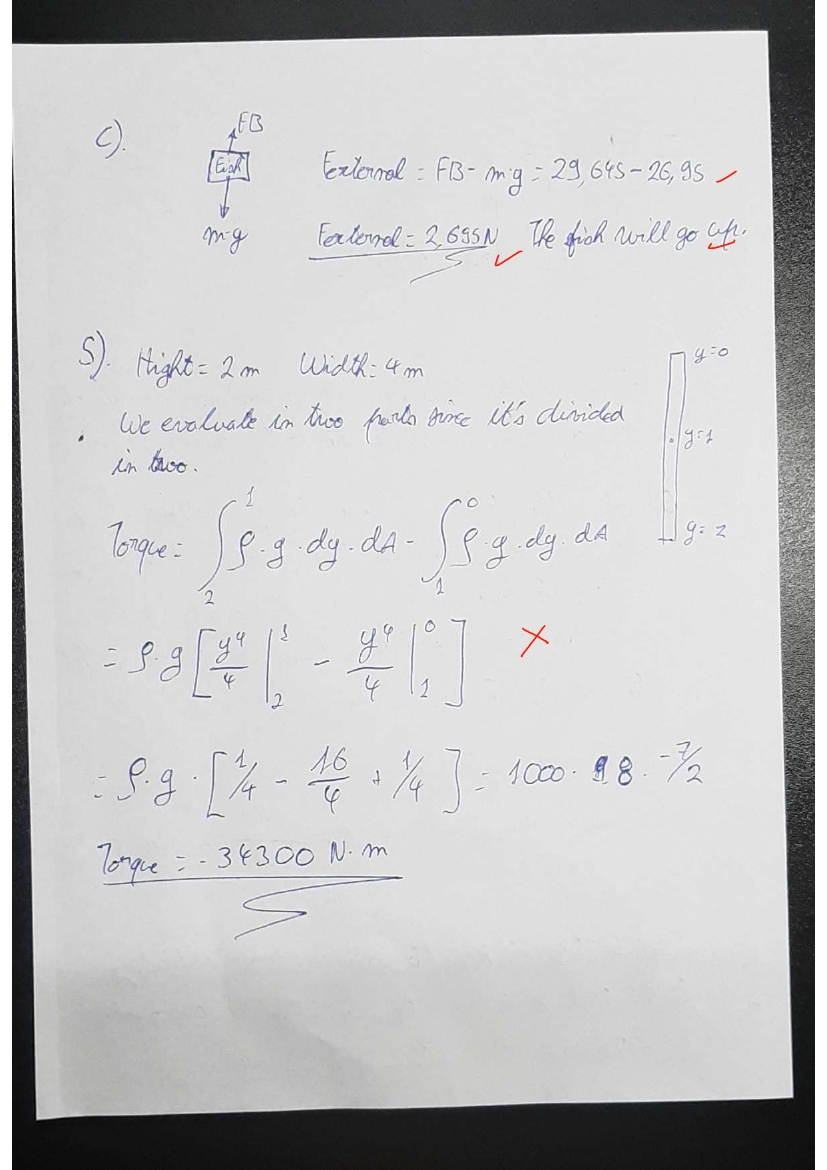 C).
FB
Fish
m·g
External = FB - m·g = 29,645 - 26,95
External = 2,695N The fish will go up.
5). Hight = 2m Width = 4m
y=0
y=1
y=2
We evaluate in two parts since it's divided
in two.
Torque = ∫₂¹ ρ·g·dy·dA - ∫₁⁰ ρ·g·dy·dA
= ρ·g [y⁴/4 |₂¹ - y⁴/4 |₁⁰]
= ρ·g·[1/4 - 16/4 + 1/4] = 1000·9,8·-7/2
Torque = -34300 N·m